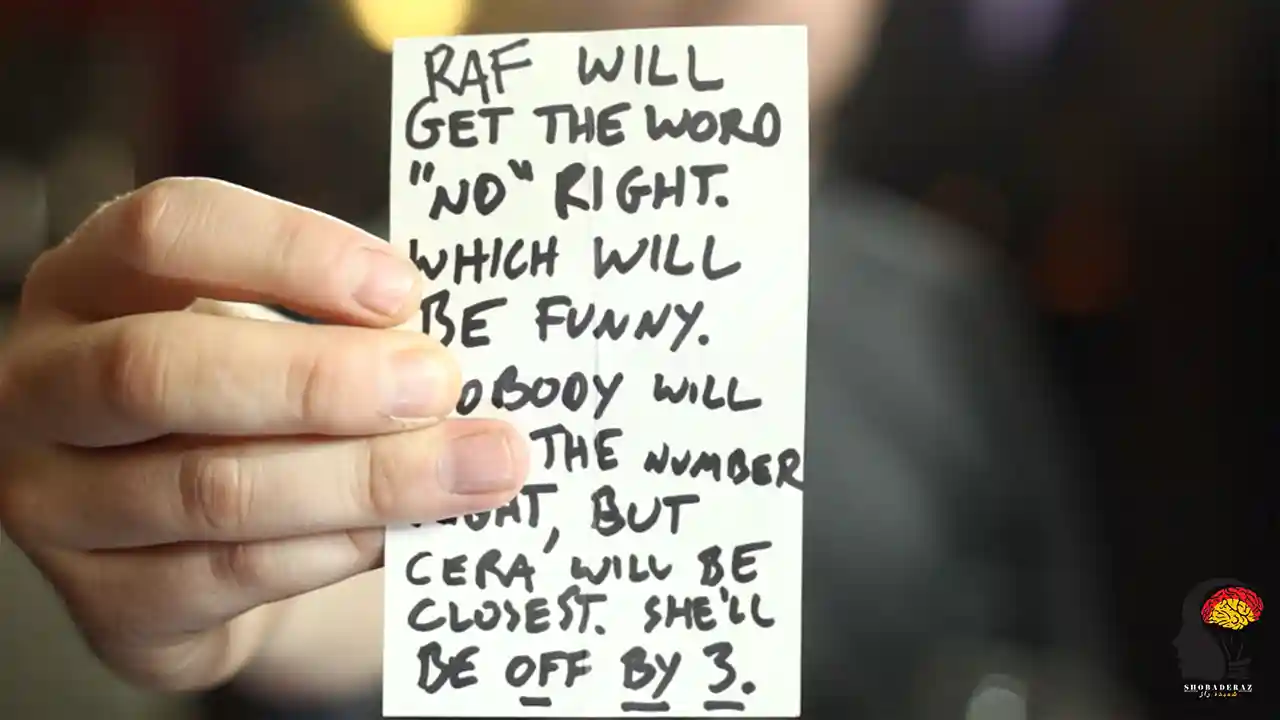 RAF WILL
GET THE WORD
"NO" RIGHT.
WHICH WILL
BE FUNNY.
OBODY WILL
THE NUMBER
BUT
CERA WILL BE
CLOSEST. SHE'LL
BE OFF BY 3.
SHOBADERAZ